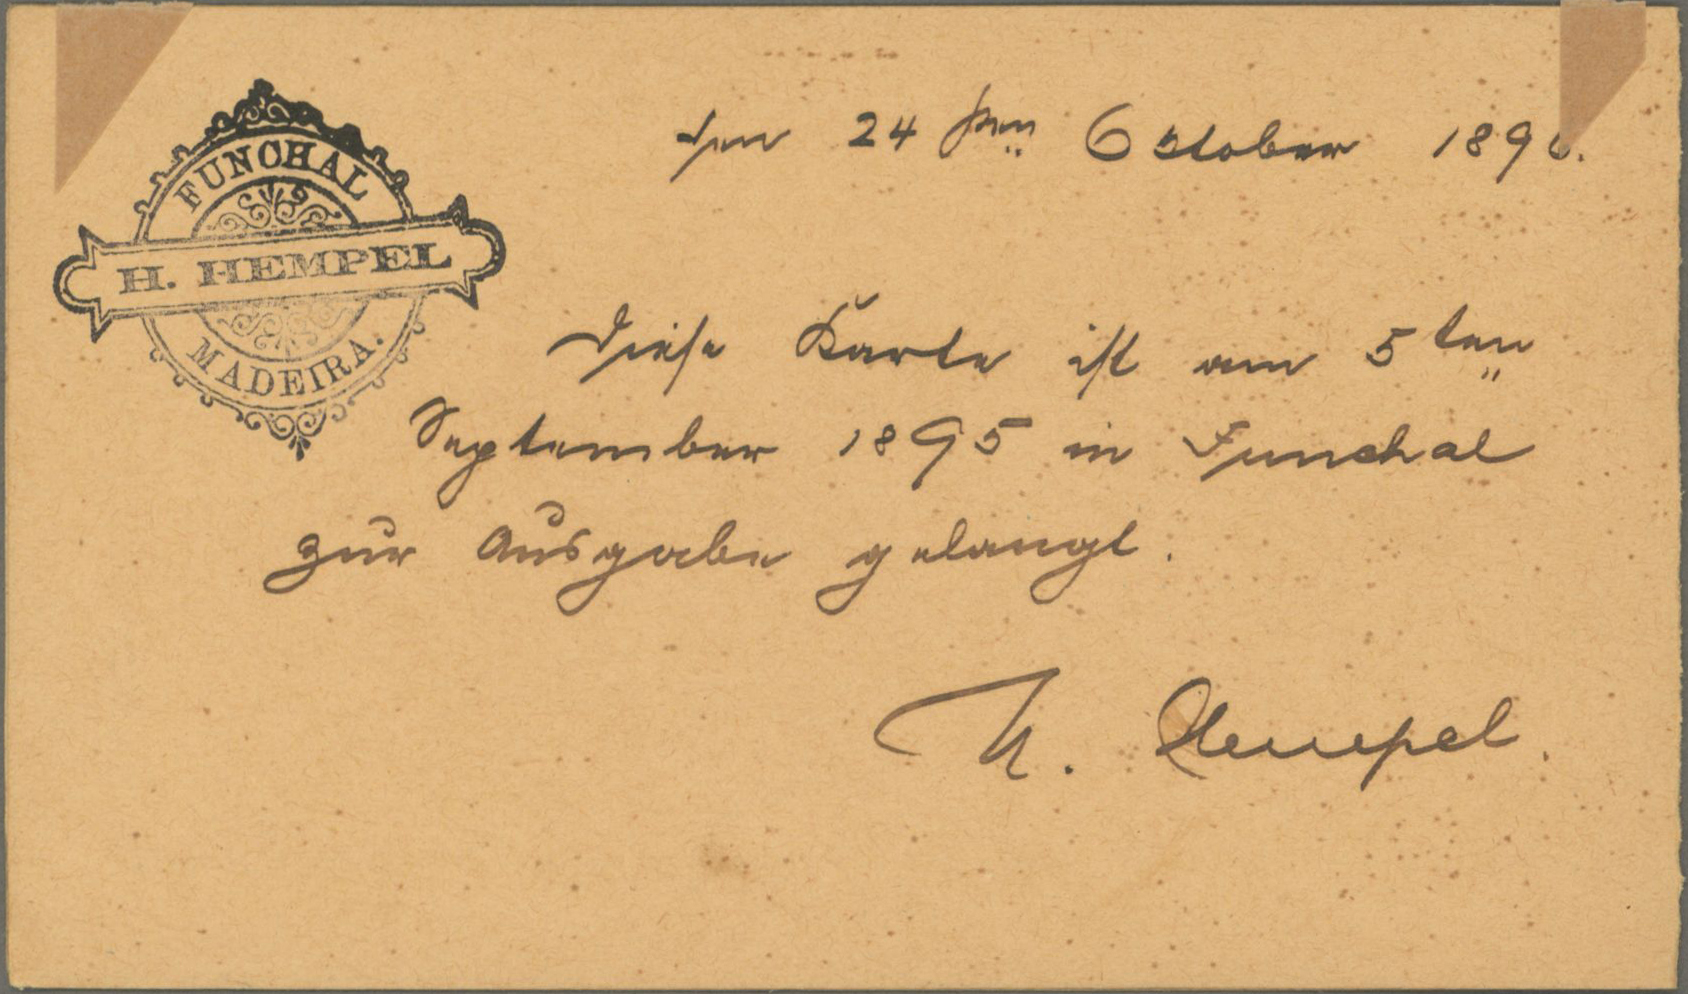 FUNCHAL
H. HEMPEL
MADEIRA.
den 24 ten October 1896.
Diese Karte ist am 5ten
September 1895 in Funchal
zur Ausgabe gelangt.
H. Hempel.